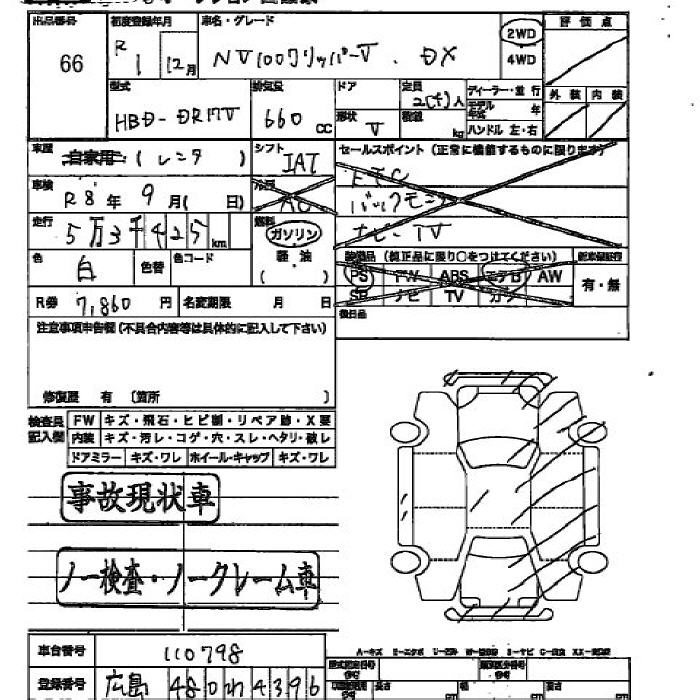 出品番号 初度登録年月 車名・グレード 2WD 評価点
66 R1 12月 NV100クリッパーV . DX 4WD
型式 排気量 ドア 定員 ディーラー・並行 外装 内装
HBD-DR17V 660 CC 2(4)人 モデル年式 年
形状 V 積載 kg ハンドル 左・右
車歴 自家用 (レンタ) シフト IAT セールスポイント (正常に機能するものに限ります)
車検 R8年 9月( 日) 冷房 AC ETC
バックモニ
走行 5万3千425km 燃料 ガソリン ナビ TV
軽油
( )
色 白 色替 色コード 装備品 (純正品に限り○をつけてください) 新車保証書
PS PW ABS エアB AW 有・無
SR ナビ TV カワ
R券 7,860円 名変期限 月 日
後日品
注意事項申告欄(不具合内容等は具体的に記入して下さい)
修復歴 有 〔箇所 〕
検査員記入欄 FW キズ・飛石・ヒビ割・リペア跡・X要
内装 キズ・汚レ・コゲ・穴・スレ・ヘタリ・破レ
ドアミラー キズ・ワレ ホイール・キャップ キズ・ワレ
事故現状車
ノー検査・ノークレーム車
車台番号 110798
登録番号 広島 480わ4396
長さ 幅 高さ